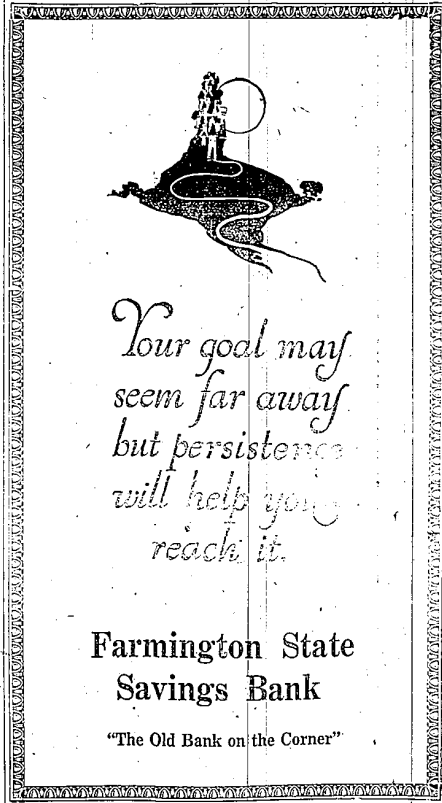 Your goal may
seem far away
but persistence
will help you
reach it.
Farmington State
Savings Bank
"The Old Bank on the Corner"